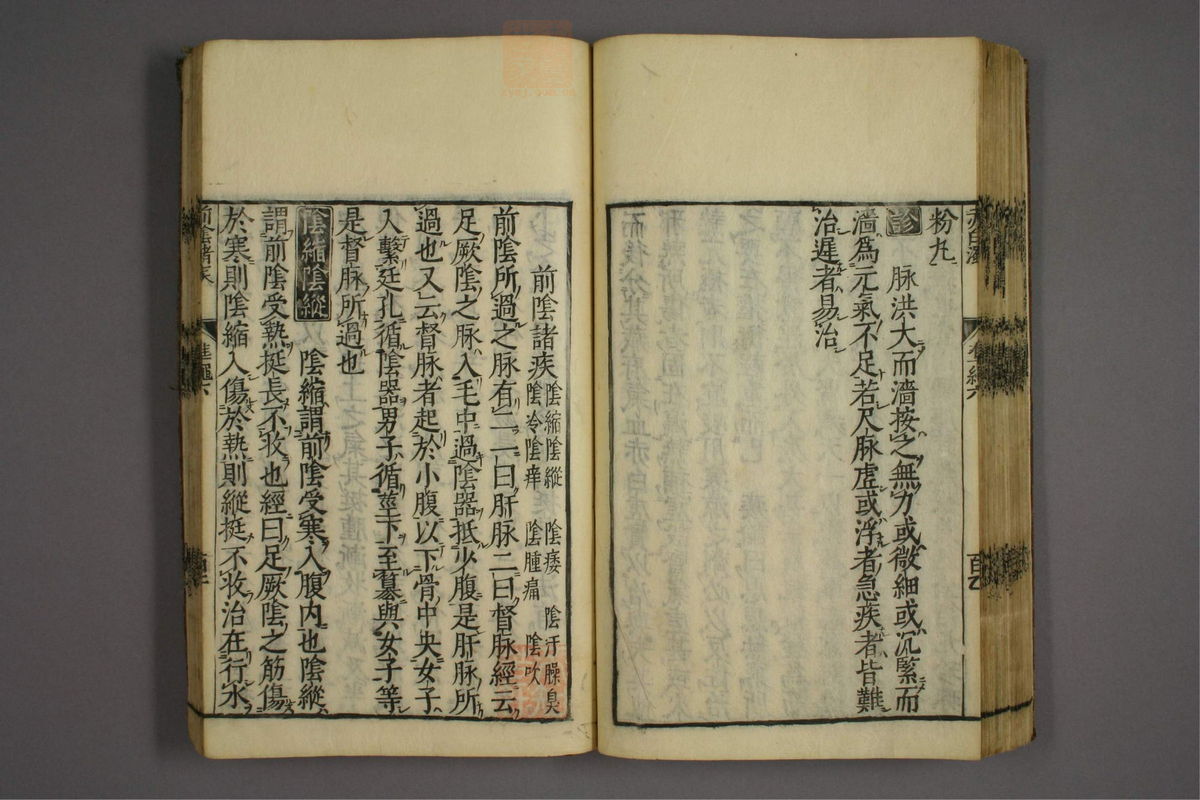 粉丸
診 脉洪大而濇按之無力或微細或沉緊而
濇為元氣不足若尺脉虛或浮者急疾者皆難
治遲者易治
前陰諸疾 陰縮陰縱 陰痿 陰汗臊臭
陰冷陰痒 陰腫痛 陰吹
前陰所過之脉有二一曰肝脉二曰督脉經云
足厥陰之脉入毛中過陰器抵少腹是肝脉所
過也又云督脉者起於小腹以下骨中央女子
入繫廷孔循陰器男子循莖下至篡與女子等
是督脉所過也
陰縮陰縱 陰縮謂前陰受寒入腹內也陰縱
謂前陰受熱挺長不收也經曰足厥陰之筋傷
於寒則陰縮入傷於熱則縱挺不收治在行水
前陰諸疾